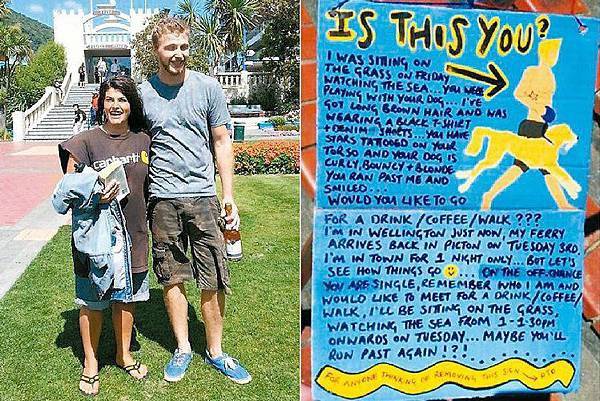 carhartt
IS THIS YOU?
I WAS SITTING ON
THE GRASS ON FRIDAY
WATCHING THE SEA... YOU WERE
PLAYING WITH YOUR DOG... I'VE
GOT LONG BROWN HAIR AND WAS
WEARING A BLACK T.SHIRT
+ DENIM SHORTS... YOU HAVE
STARS TATOOED ON YOUR
TORSO AND YOUR DOG IS
CURLY, BOUNCY + BLONDE
YOU RAN PAST ME AND
SMILED...
WOULD YOU LIKE TO GO
FOR A DRINK/COFFEE/WALK???
I'M IN WELLINGTON JUST NOW, MY FERRY
ARRIVES BACK IN PICTON ON TUESDAY 3RD,
I'M IN TOWN FOR 1 NIGHT ONLY... BUT LET'S
SEE HOW THINGS GO ... ON THE OFF CHANCE
YOU ARE SINGLE, REMEMBER WHO I AM AND
WOULD LIKE TO MEET FOR A DRINK/COFFEE/
WALK, I'LL BE SITTING ON THE GRASS,
WATCHING THE SEA FROM 1-1.30PM
ONWARDS ON TUESDAY... MAYBE YOU'LL
RUN PAST AGAIN!?!
FOR ANYONE THINKING OF REMOVING THIS SIGN → PTO